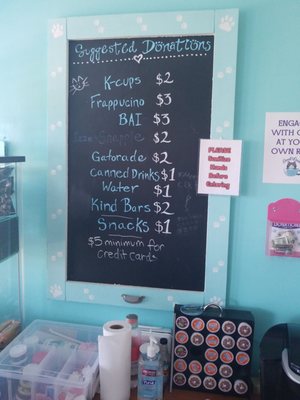 Suggested Donations
K-cups $2
Frappucino $3
BAI $3
Snapple $2
Gatorade $2
Canned Drinks $1
Water $1
Kind Bars $2
Snacks $1
$5 minimum for
credit cards
PLEASE
Sanitize
Hands
Before
Coloring
ENGAGE
WITH
AT YO
OWN R
DONATIONS
PURELL